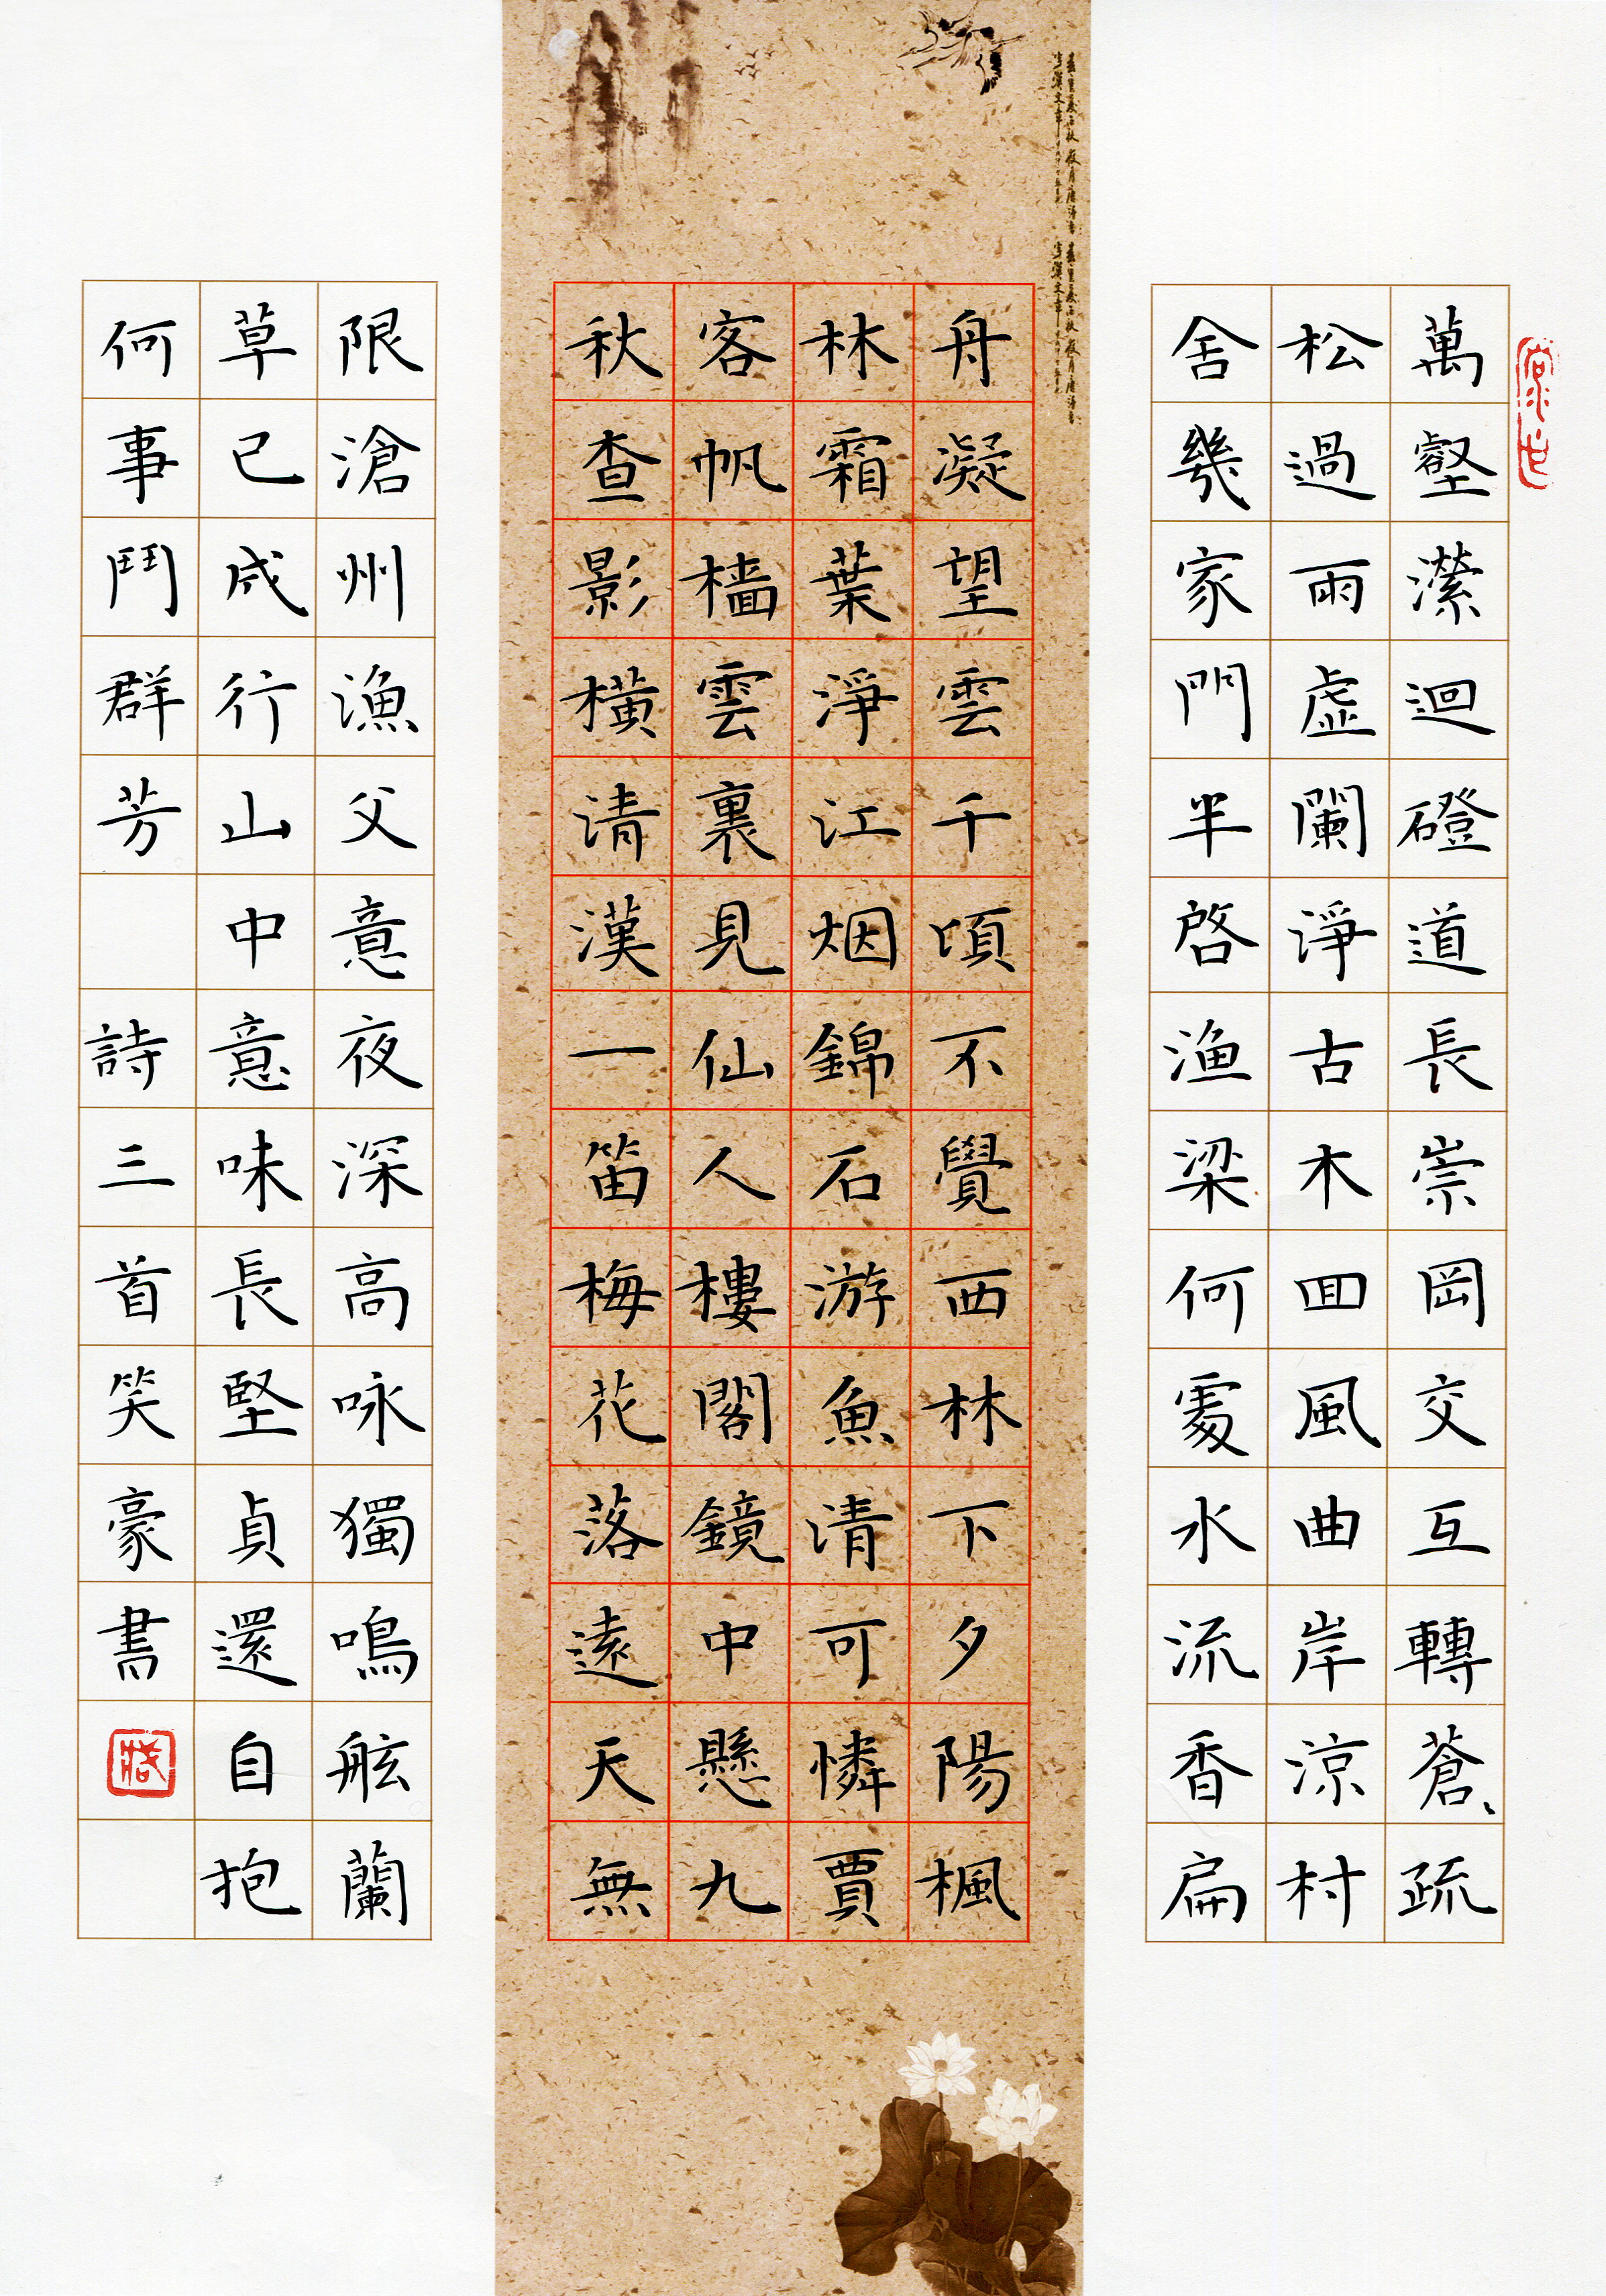 萬壑瀠迴磴道長崇岡交互轉蒼、疏
松過雨虛闌淨古木囬風曲岸涼村
舍幾家門半啓漁梁何處水流香扁
舟凝望雲千頃不覺西林下夕陽楓
林霜葉淨江烟錦石游魚清可憐賈
客帆檣雲裏見仙人樓閣鏡中懸九
秋查影橫清漢一笛梅花落遠天無
限滄州漁父意夜深高咏獨鳴舷蘭
草已成行山中意味長堅貞還自抱
何事鬥群芳 詩三首笑豪書